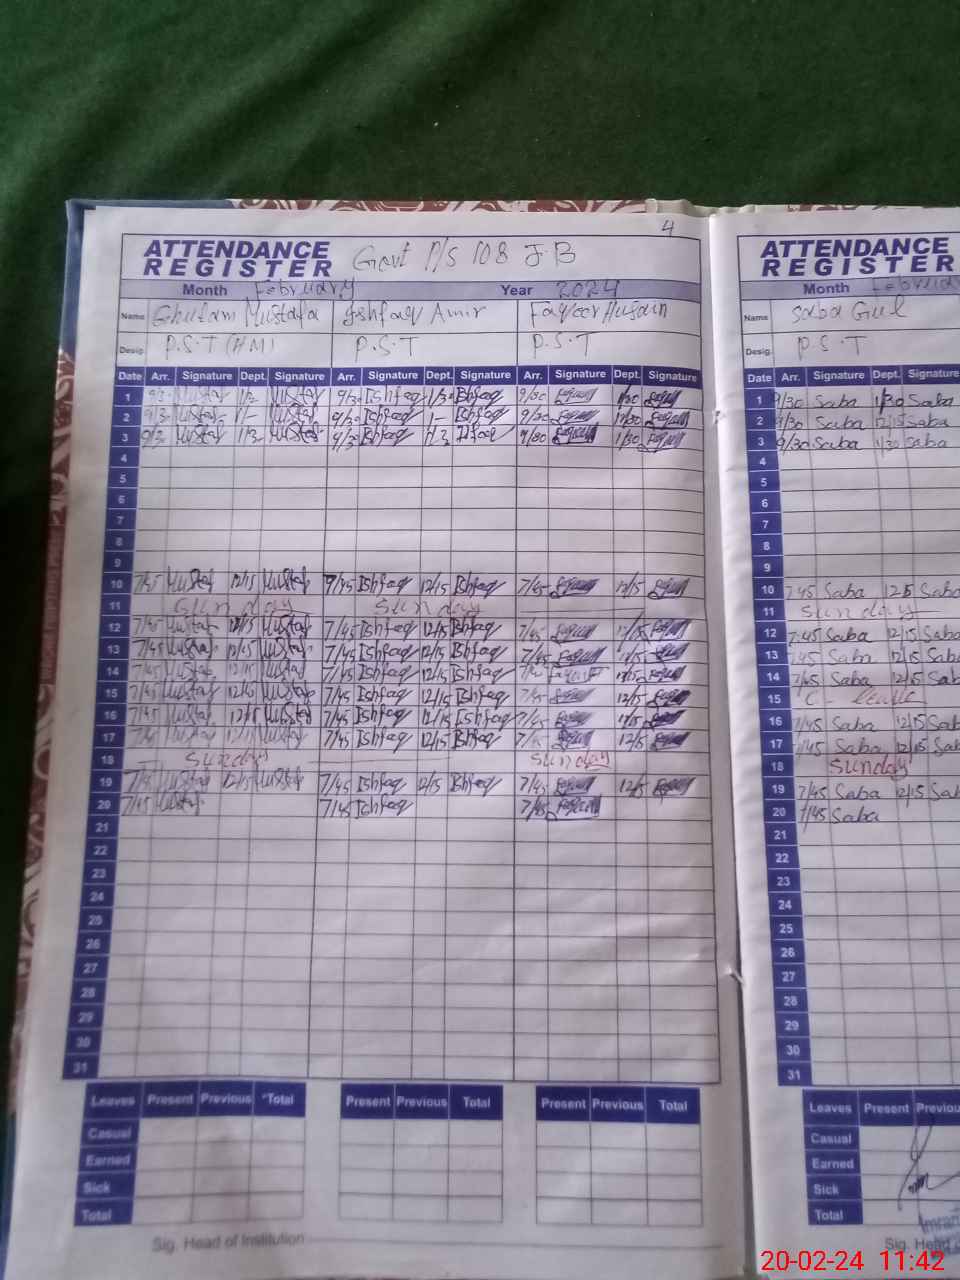 4
ATTENDANCE REGISTER Govt P/S 108 J-B
Month February Year 2024
Name Ghulam Mustafa Ishfaq Amir Faqeer Husain
Desig. P.S.T (HM) P.S.T P.S.T
Date Arr. Signature Dept. Signature Arr. Signature Dept. Signature Arr. Signature Dept. Signature
1 9/30 Mustaf 9/30 Ishfaq 1/30 Ishfaq 9/30 1/30
2 9/30 Mustaf 9/30 Ishfaq Ishfaq 9/30
3 Mustaf 9/30 Ishfaq 9/30 1/30
4
5
6
7
8
9
10 7/45 Mustaf 12/15 Mustaf Ishfaq 12/15 Ishfaq 7/45 12/15
11 Sunday Sunday
12 7/45 Mustaf 12/15 Mustaf 7/45 Ishfaq 12/15 Ishfaq 7/45
13 7/45 Mustaf 12/15 Mustaf 7/45 Ishfaq 12/15 Ishfaq 7/45 12/15
14 7/45 Mustaf 12/15 Mustaf 7/45 Ishfaq 12/15 Ishfaq 12/15
15 7/45 Mustaf 12/15 Mustaf 7/45 Ishfaq 12/15 Ishfaq 7/45 12/15
16 7/45 Mustaf 12/15 Mustaf 7/45 Ishfaq 12/15 Ishfaq 7/45 12/15
17 7/45 Mustaf 12/15 Mustaf 7/45 Ishfaq 12/15 Ishfaq 7/45 12/15
18 Sunday Sunday
19 7/45 Mustaf 12/15 Mustaf 7/45 Ishfaq 12/15 Ishfaq 7/45 12/15
20 7/45 Mustaf 7/45 Ishfaq 7/45
21
22
23
24
25
26
27
28
29
30
31
Leaves Present Previous *Total Present Previous Total Present Previous Total
Casual
Earned
Sick
Total
Sig. Head of Institution
ATTENDANCE REGISTER
Month
Name Saba Gul
Desig. P.S.T
Date Arr. Signature Dept. Signature
1 9/30 Saba 1/30 Saba
2 9/30 Saba 12/15 Saba
3 9/30 Saba 1/30 Saba
4
5
6
7
8
9
10 7:45 Saba 12:15 Saba
11 Sunday
12 7:45 Saba 12/15 Saba
13 7:45 Saba 12/15 Saba
14 7/45 Saba 12/15
15 C - leave
16 7/45 Saba 12/15
17 7/45 Saba 12/15
18 Sunday
19 7/45 Saba 12/15
20 7/45 Saba
21
22
23
24
25
26
27
28
29
30
31
Leaves Present
Casual
Earned
Sick
Total
Sig.
20-02-24 11:42